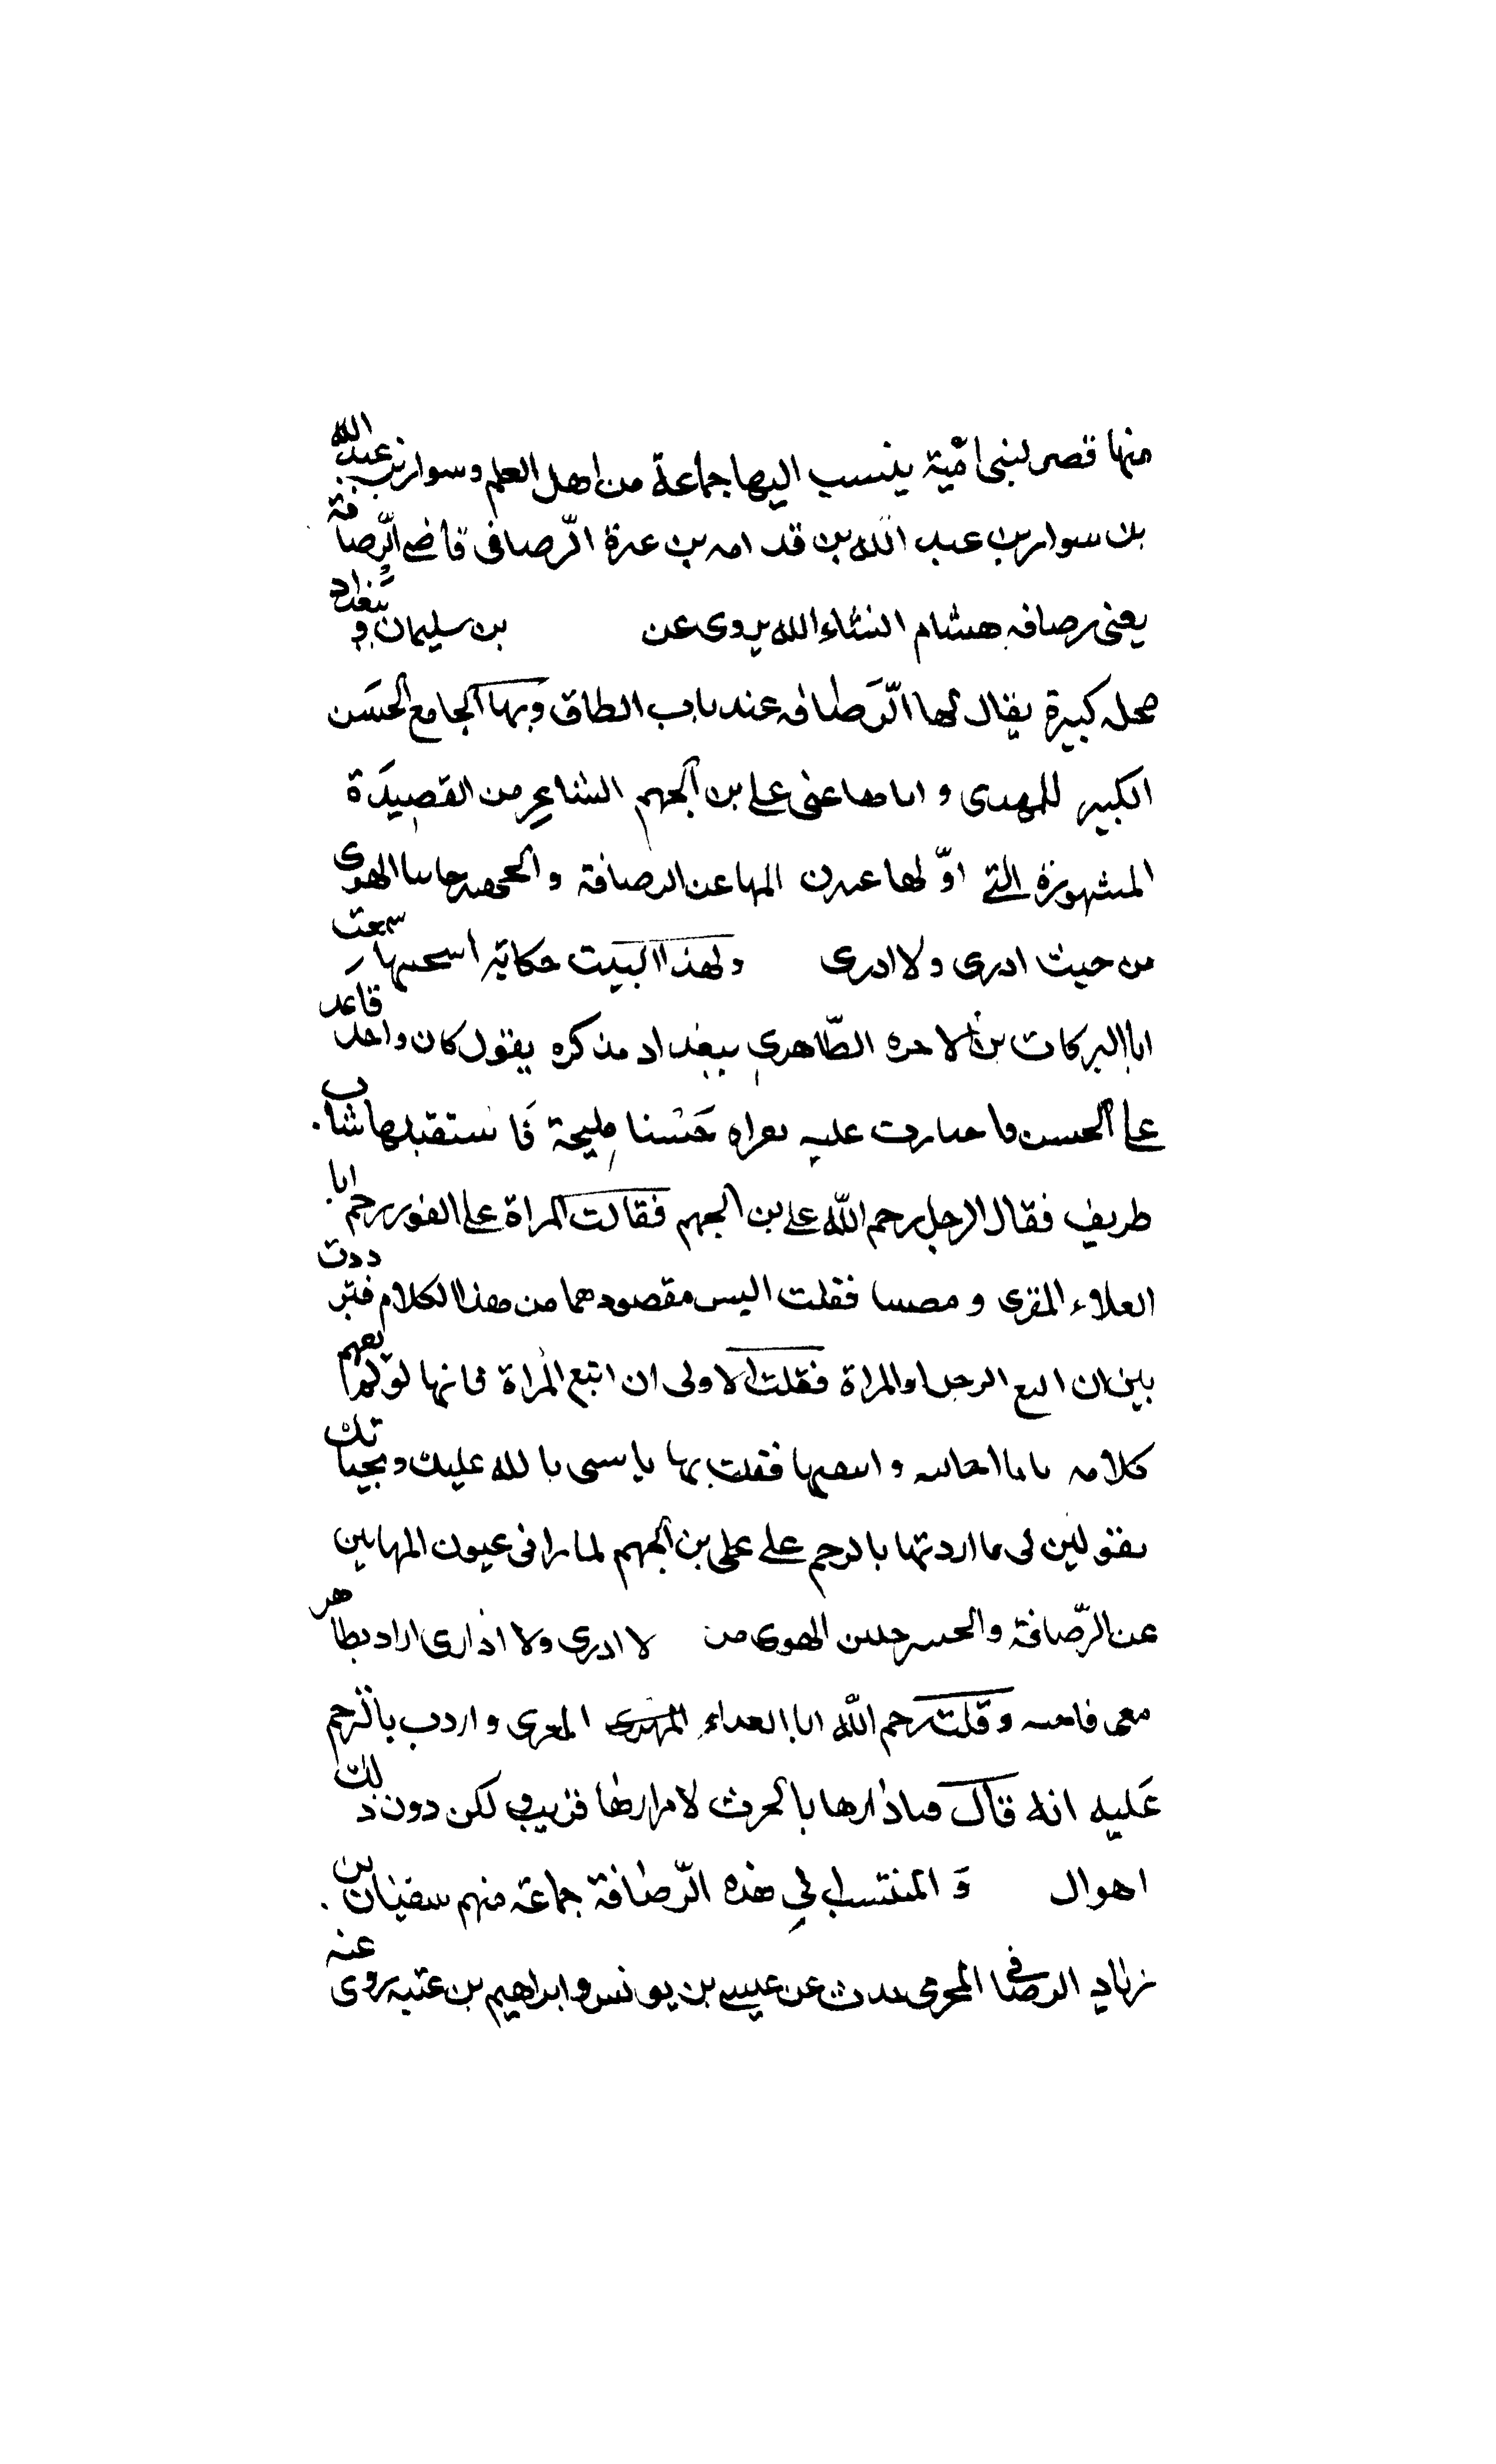 منها قصر لبنى امّية ينسب اليها جماعة من اهل العلم وسوار بن عبد الله
بن سوار بن عبد الله بن قدامه بن عنزة الرّصافى قاضى الرّصافة
يعنى رصافه هشام انشاء الله يروى عن بن سليمان وببغداد
محله كبيرة يقال لها الرّصافه عند باب الطاق وبها الجامع الحسن
الكبير للمهدى و اياها عنى على بن الجهم الشاعر من القصيدة
المشهورة التى اوّلها عيون المها عن الرصافة و الهوى
من حيث ادرى ولا ادرى ولهذا البيت حكاية سمعت
ابا البركات الطّاهرى ببغداد مذكره يقول كان واحد قاعد
على الحسن عليه حسنا مليحة فاستقبلها شاب
ظريف فقال الرجل رحم الله على بن الجهم فقالت المراة على الفور رحم ابا
العلاء المقرى و فقلت اليس مقصودهما من هذا الكلام فترددت
بين ان اتبع الرجل او المراة فقلت الاولى ان اتبع المراة فانها
كلامه و فقلت بها يا بالله عليك وبحياتك
تقولين لى ما اردتها بالرحم على على بن الجهم لما را فى عيون المها بين
عن الرّصافة و الهوى من لا ادرى ولا اذارى اراد بطاهر
معى وقلت رحم الله ابا العداء المعرى و اردت بالترحم
عليه انه قال فيا دارها بالحرث لا مرارها قريب ولكن دون ذلك
اهوال و المنتسب لى هذه الرّصافة جماعة منهم سفيان بن
زياد الرصافى المخرمى حدث عن عيسى بن يونس و ابراهيم بن عتبه روى عنه